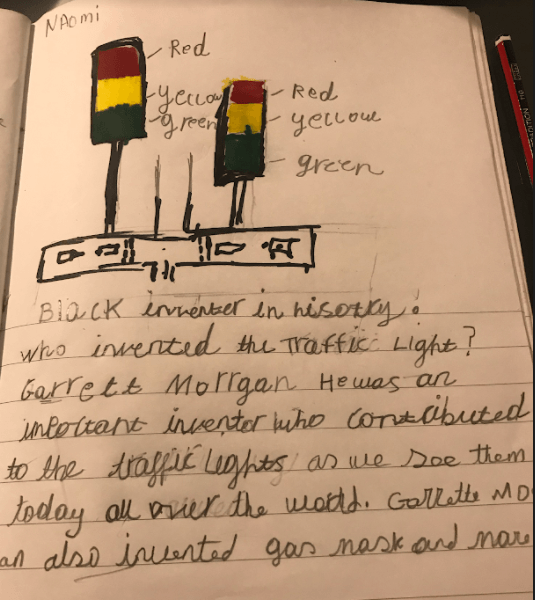 NAomi
Red
yellow
green
Red
yellow
green
Black inventer in hisotry.
who invented the Traffic Light?
Garrett Morrgan He was an
important inventor who contributed
to the traffic Lights as we see them
today all over the world. Garrette Mo
an also invented gas mask and more